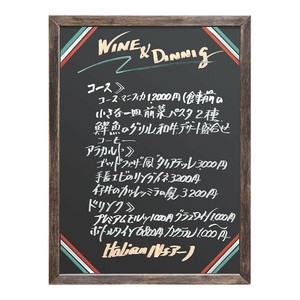 WINE & DINNIG
コース》
コースマニフィカ12000円(食事前の
小さな一皿 前菜 パスタ2種
鮮魚のグリル 和牛 デザート盛合せ
コーヒー
アラカルト》
ゴッドファザー風 タリアテッレ 3000円
手長エビのリングイネ 3200円
3200円
ドリンク》
プレミアムモルツ 1000円 グラスワイン 1000円
ボトルワイン 6800円 カクテル 1000円
Italian